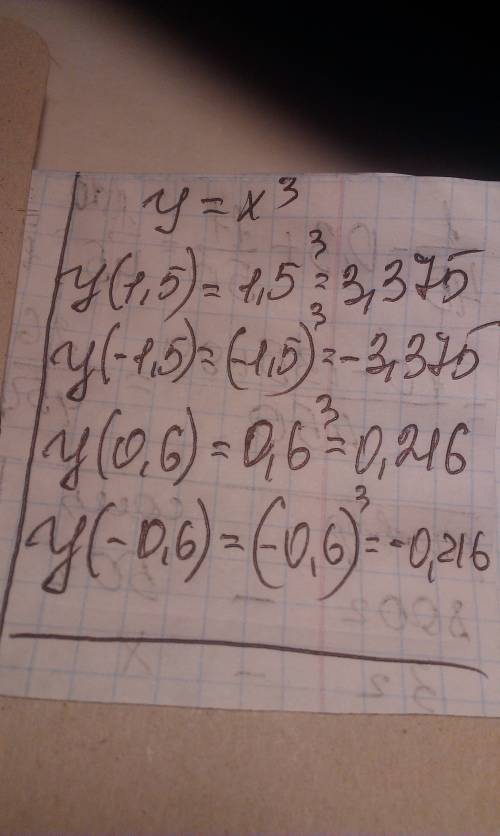 y = x³
y(1,5) = 1,5³ = 3,375
y(-1,5) = (-1,5)³ = -3,375
y(0,6) = 0,6³ = 0,216
y(-0,6) = (-0,6)³ = -0,216